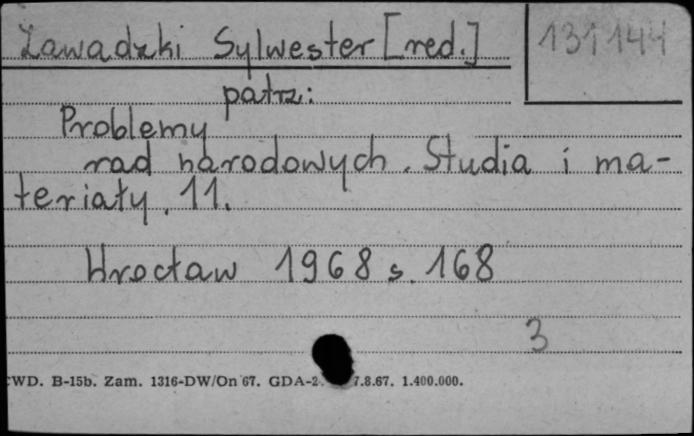 Zawadzki Sylwester [red.]
131144
patrz:
Problemy
rad narodowych. Studia i ma-
teriały. 11.
Wrocław 1968 s. 168
3
WD. B-15b. Zam. 1316-DW/On 67. GDA-2 7.8.67. 1.400.000.